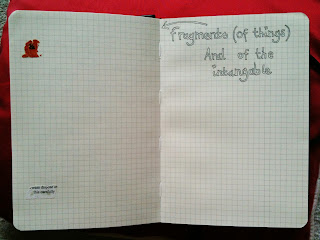 Fragments (of things)
And of the
intangable